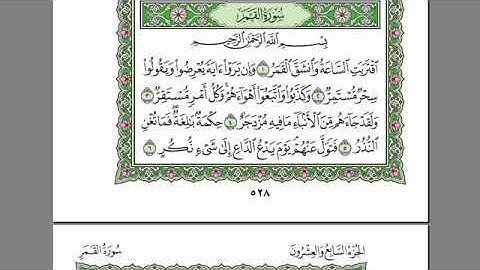 سُورَةُ القَمَرِ
بِسْمِ اللَّهِ الرَّحْمَٰنِ الرَّحِيمِ
اقْتَرَبَتِ السَّاعَةُ وَانشَقَّ الْقَمَرُ ١ وَإِن يَرَوْا ءَايَةً يُعْرِضُوا وَيَقُولُوا
سِحْرٌ مُّسْتَمِرٌّ ٢ وَكَذَّبُوا وَاتَّبَعُوا أَهْوَاءَهُمْ وَكُلُّ أَمْرٍ مُّسْتَقِرٌّ ٣
وَلَقَدْ جَاءَهُم مِّنَ الْأَنبَاءِ مَا فِيهِ مُزْدَجَرٌ ٤ حِكْمَةٌ بَالِغَةٌ فَمَا تُغْنِ
النُّذُرُ ٥ فَتَوَلَّ عَنْهُمْ يَوْمَ يَدْعُ الدَّاعِ إِلَىٰ شَيْءٍ نُّكُرٍ ٦
٥٢٨
الجُزْءُ السَّابِعُ وَالعِشْرُونَ سُورَةُ القَمَرِ